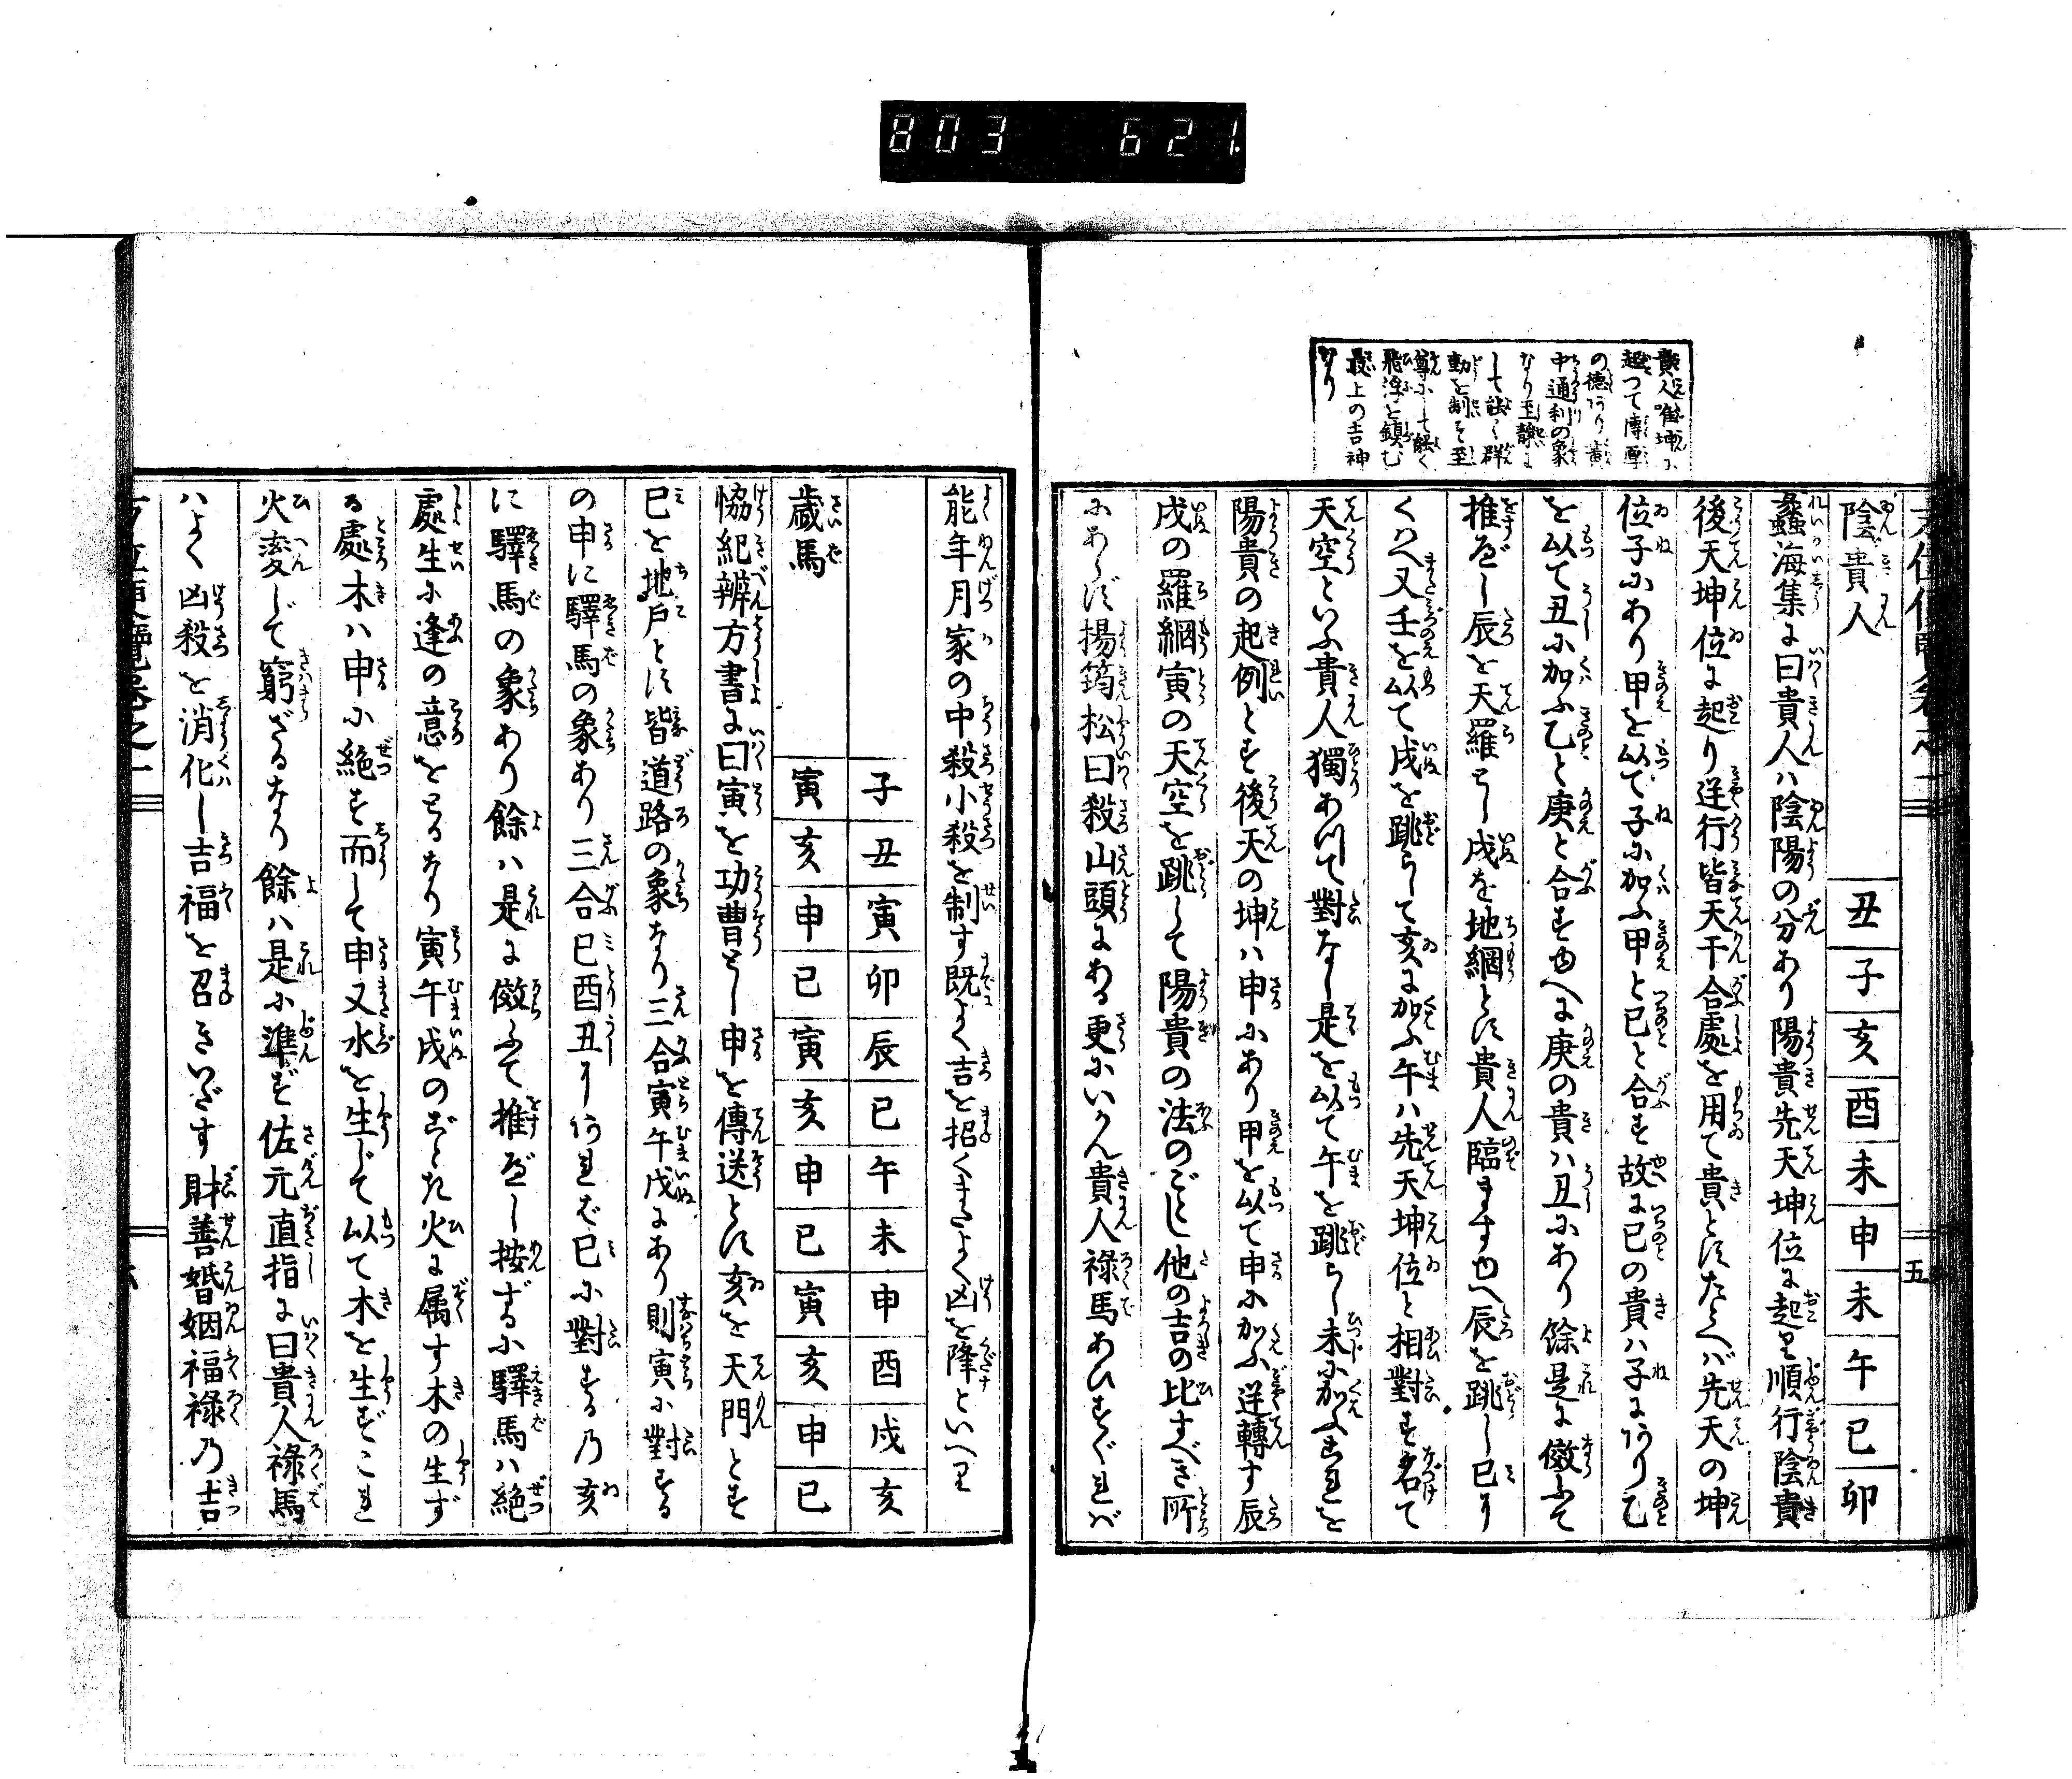 803 621.
貴人唯坤に
起つて博厚
の徳あり黄
中通利の象
なり至静に
して能く群
動を制す至
尊にして能く
飛浮を鎮む
最上の吉神
なり
五
陰貴人 丑 子 亥 酉 未 申 未 午 巳 卯
蠡海集に曰貴人ハ陰陽の分あり陽貴先天坤位に起て順行陰貴
後天坤位に起り逆行皆天干合處を用て貴とすたとへバ先天の坤
位子にあり甲を以て子に加ふ甲と己と合す故に己の貴ハ子にあり乙
を以て丑に加ふ乙と庚と合すゆへに庚の貴ハ丑にあり餘是に傚ふて
推べし辰を天羅とし戌を地網とす貴人臨ますゆへ辰を跳し巳に
くハへ又壬を以て戌を跳らして亥に加ふ午ハ先天坤位と相對す名て
天空といふ貴人獨あつて對なし是を以て午を跳らし未に加ふこれを
陽貴の起例とす後天の坤ハ申にあり甲を以て申に加ふ逆轉す辰
戌の羅網寅の天空を跳して陽貴の法のごとし他の吉の比すべき所
にあらず揚筠松曰殺山頭にある更にいかん貴人祿馬あひすぐれバ
能年月家の中殺小殺を制す既よく吉を招くまたよく凶を降といへり
子 丑 寅 卯 辰 巳 午 未 申 酉 戌 亥
歳馬 寅 亥 申 巳 寅 亥 申 巳 寅 亥 申 巳
恊紀辨方書に曰寅を功曹とし申を傳送とす亥を天門とす
巳を地戸とす皆道路の象なり三合寅午戌にあり則寅に對する
の申に驛馬の象あり三合巳酉丑にあれば巳に對するの亥
に驛馬の象あり餘ハ是に傚ふて推べし按ずるに驛馬ハ絶
處生に逢の意をとるなり寅午戌のごとき火に属す木の生ず
る處木ハ申に絶す而して申又水を生じて以て木を生ずこれ
火変じて窮ざるなり餘ハ是に準ず佐元直指に曰貴人祿馬
ハよく凶殺を消化し吉福を召きいだす財善婚姻福祿の吉